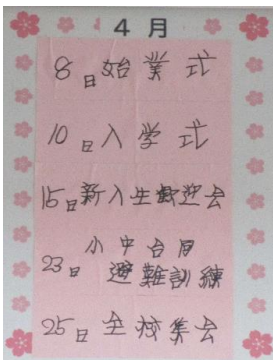 4月
8日始業式
10日入学式
15日新入生歓迎会
小中合同
23日避難訓練
25日全校集会